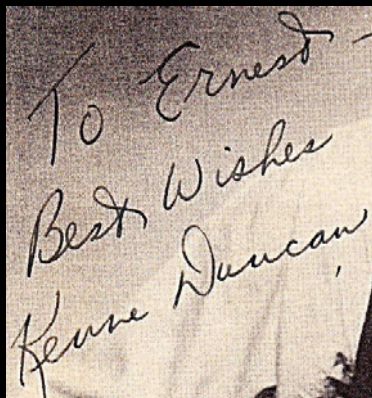 To Ernest -
Best Wishes
Kenne Duncan